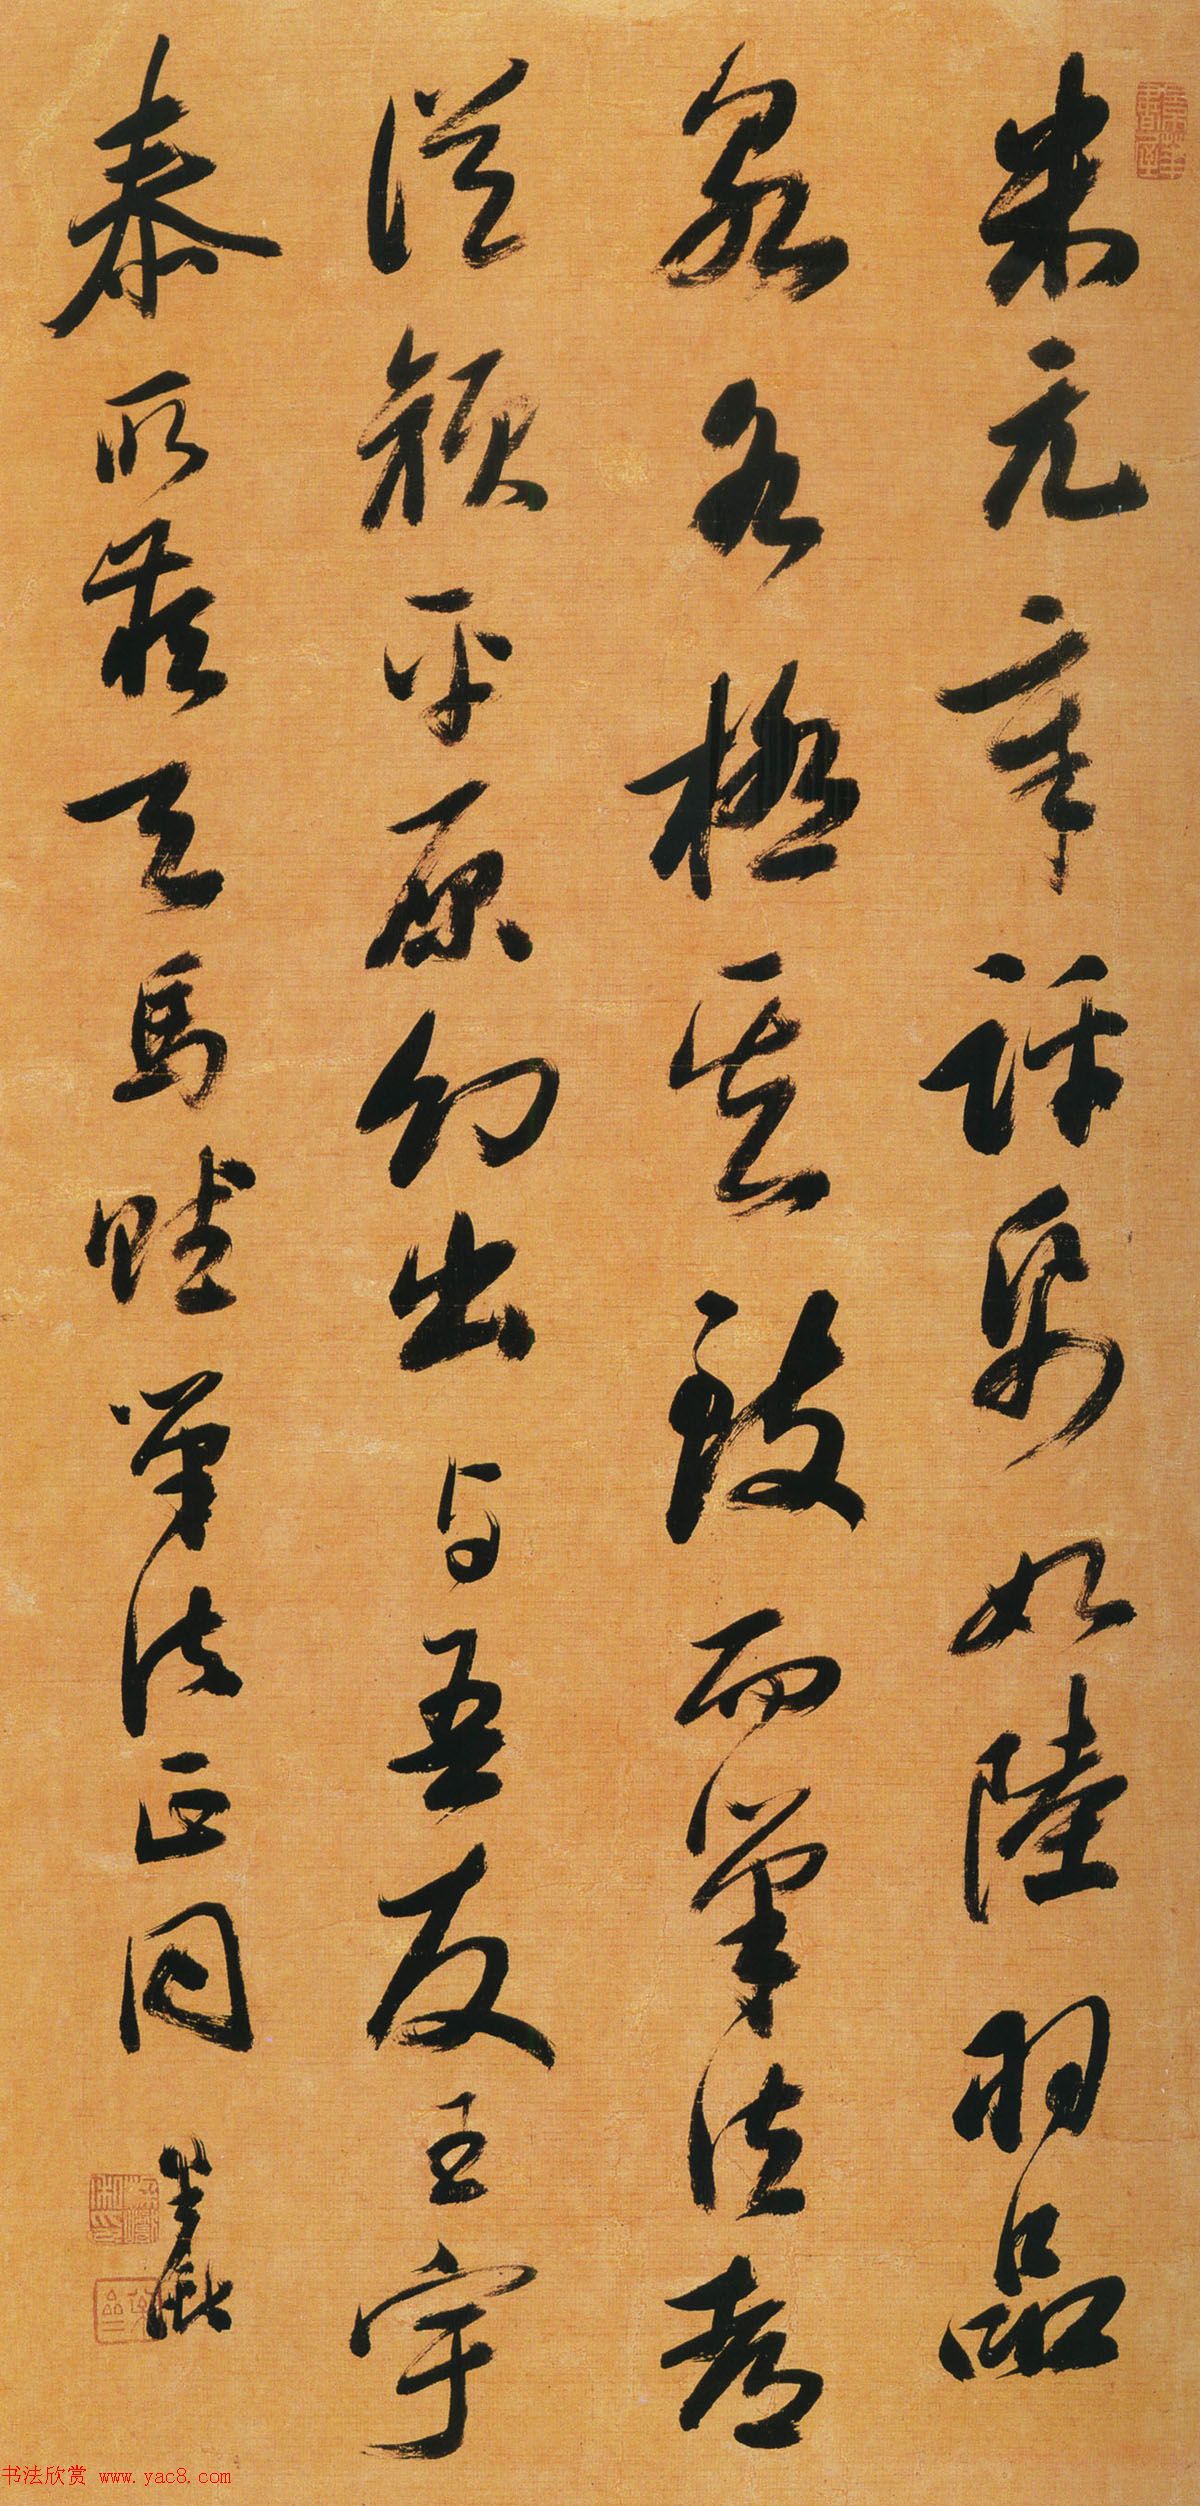 米元章評帋如陸羽品
泉各極其致而筆法都
從顏平原幻出与吾友王宇
泰所藏天馬賦筆法正同
书法欣赏 www.yac8.com